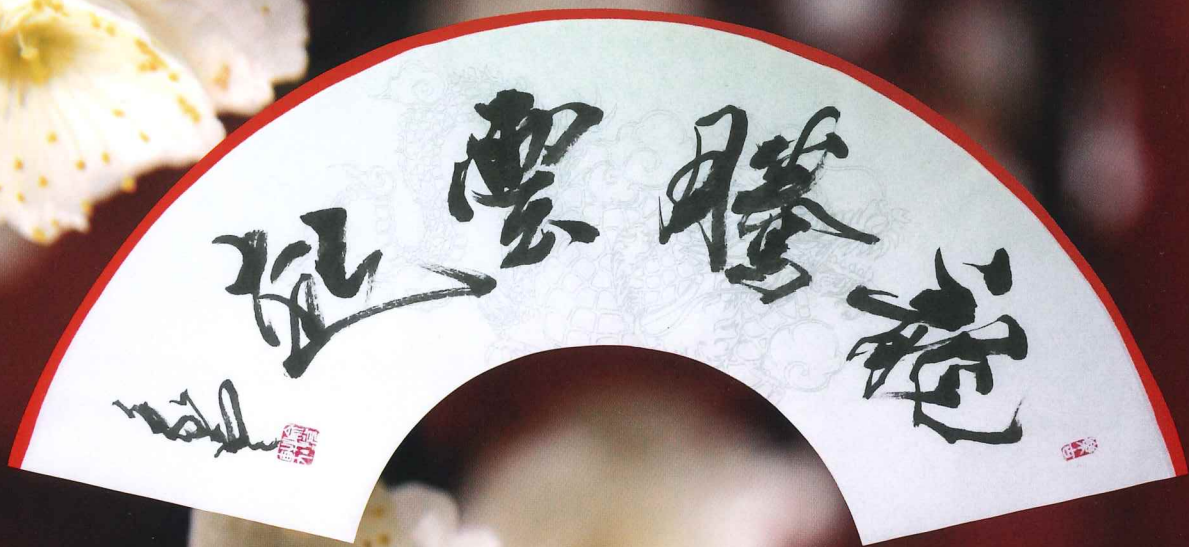 龍騰雲起